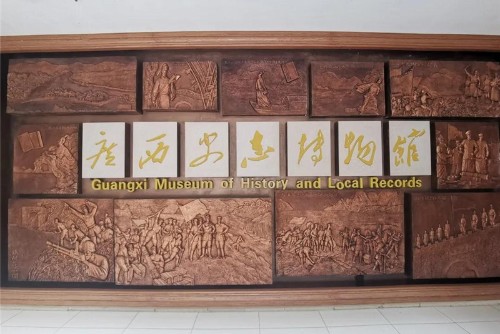 广西史志博物館
Guangxi Museum of History and Local Records